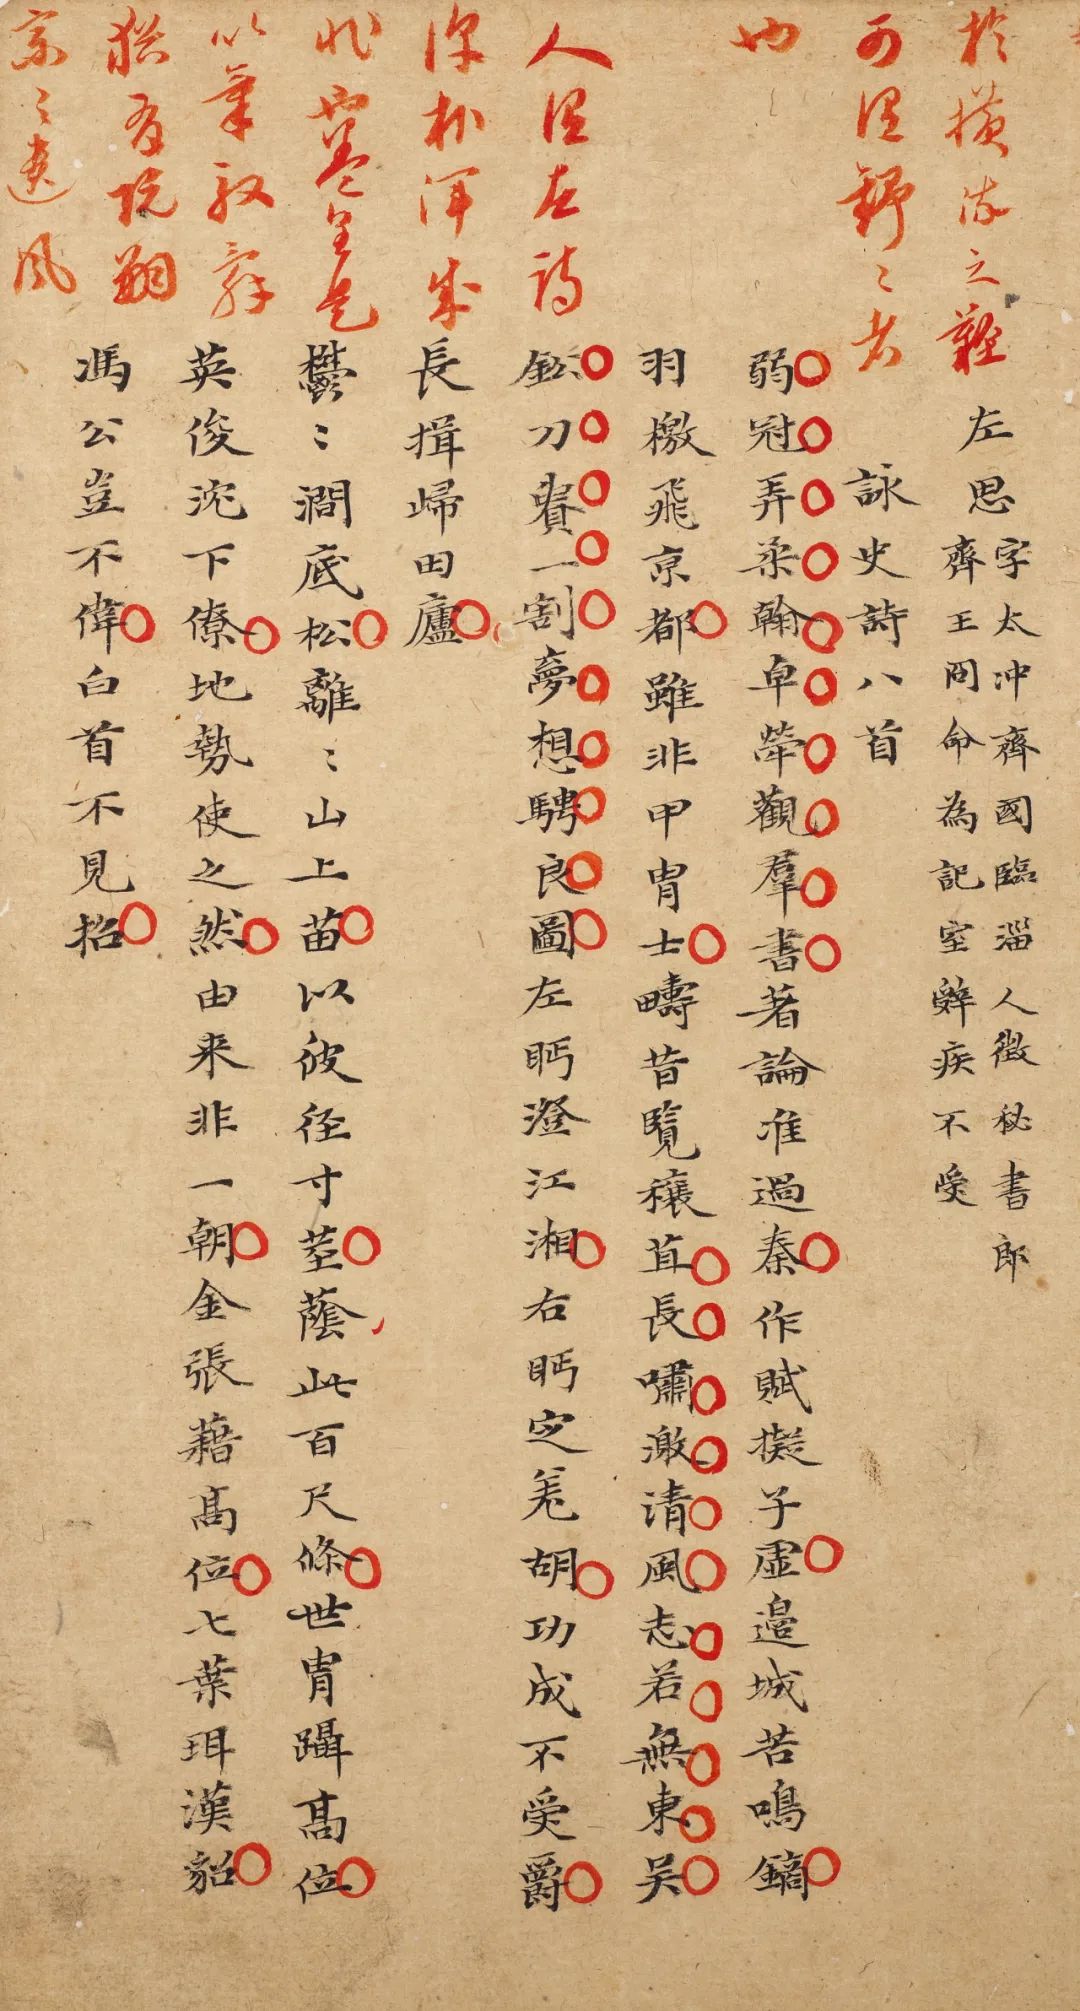 於橫流之難
可謂錚〻者
也
人謂左詩
渾成
也
以筆馭辭
猶有
遠風
左思
字太冲齊國臨淄人徵秘書郎
齊王冏命為記室辤疾不受
詠史詩八首
弱冠弄柔翰卓犖觀羣書著論准過秦作賦擬子虛邉城苦鳴鏑
羽檄飛亰都雖非甲冑士疇昔覽穰苴長嘯激清風志若無東吴
鈆刀貴一割夢想騁良圖左眄澄江湘右眄定羌胡功成不受爵
長揖歸田廬
鬱〻澗底松離〻山上苗以彼徑寸莖蔭此百尺條世冑躡髙位
英俊沈下僚地勢使之然由来非一朝金張藉髙位七葉珥漢貂
馮公豈不偉白首不見招